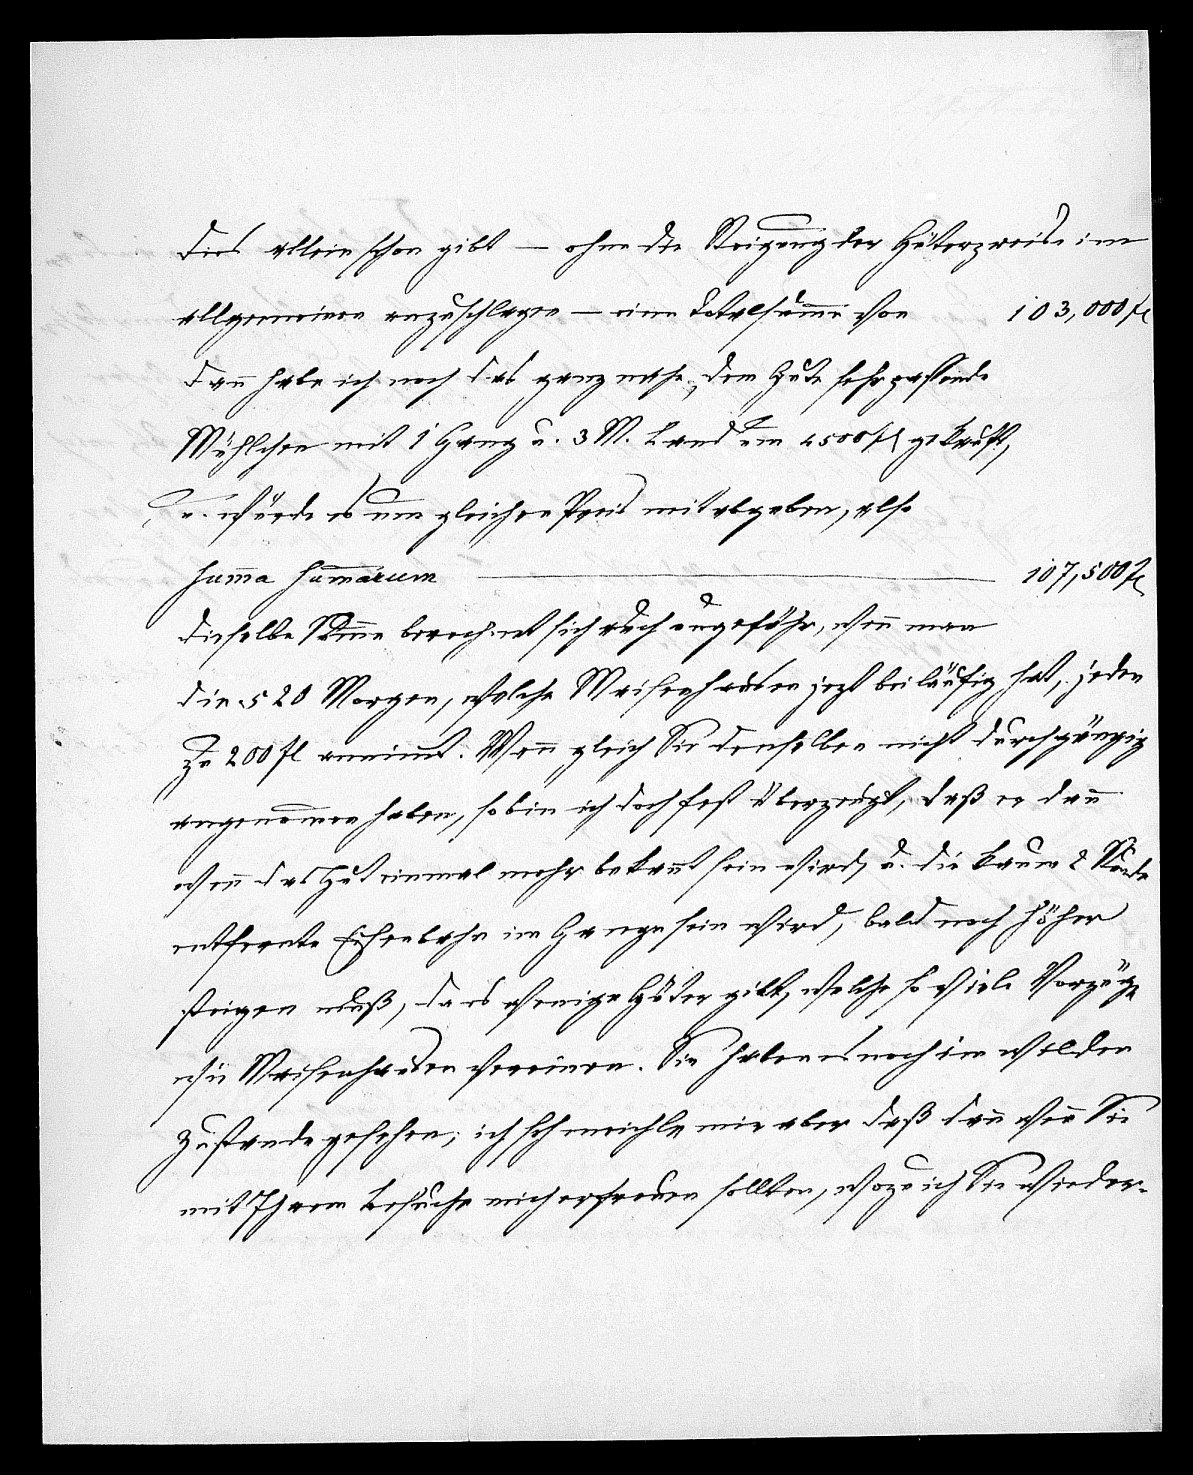 Dies allein schon gibt — ohne die Steigung der Güterpreise im
allgemeinen anzuschlagen — eine Totalsumme von 103,000 fl
Dann habe ich noch das ganz nahe, dem Gute sehr passende
Mühlchen mit 1 Gang u. 3 M. Land um 4500 fl gekauft,
u. würde es um gleichen Preis mit abgeben, also
Summa Summarum — 107,500 fl
dieselbe Summe berechnet sich auch ungefähr, wenn man
die 520 Morgen, welche Maisenhausen jezt beiläufig hat, jeden
zu 200 fl annimmt. Wenn gleich Sie denselben nicht durchgängig
angenommen haben, so bin ich doch fest überzeugt, daß er dann
wenn das Gut einmal mehr bekannt sein wird, u. die kaum 2 Stunde
entfernte Eisenbahn im Gange sein wird, bald noch höher
steigen muß, da es wenige Güter gibt, welche so viele Vorzüge
wie Maisenhausen vereinen. Sie haben es noch im wilden
Zustande gesehen; ich schmeichle mir aber daß dann wenn Sie
mit Ihrem Besuche mich erfreuen sollten, wozu ich Sie wieder-